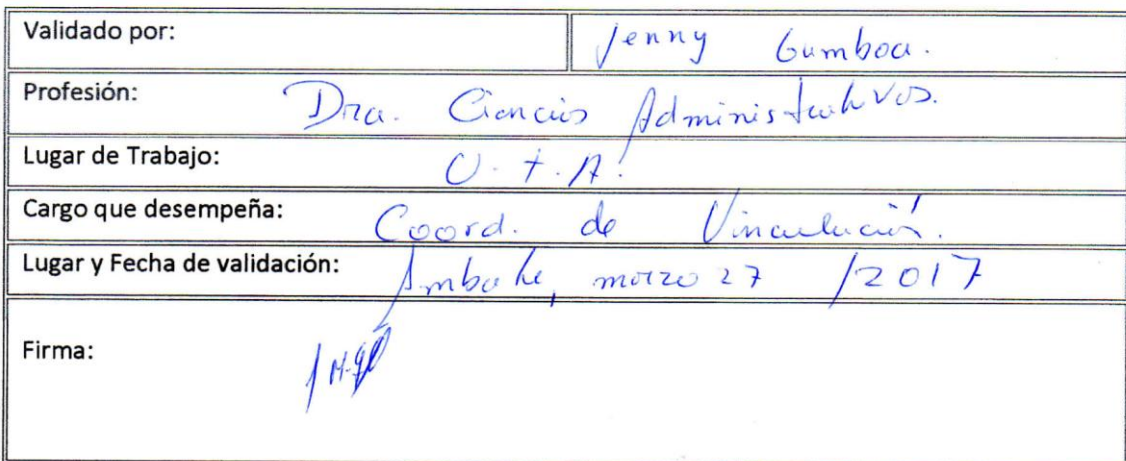 Validado por: Jenny Gamboa.
Profesión: Dra. Ciencias Administrativas.
Lugar de Trabajo: U.T.A.
Cargo que desempeña: Coord. de Vinculación.
Lugar y Fecha de validación: Ambato, marzo 27 /2017
Firma: